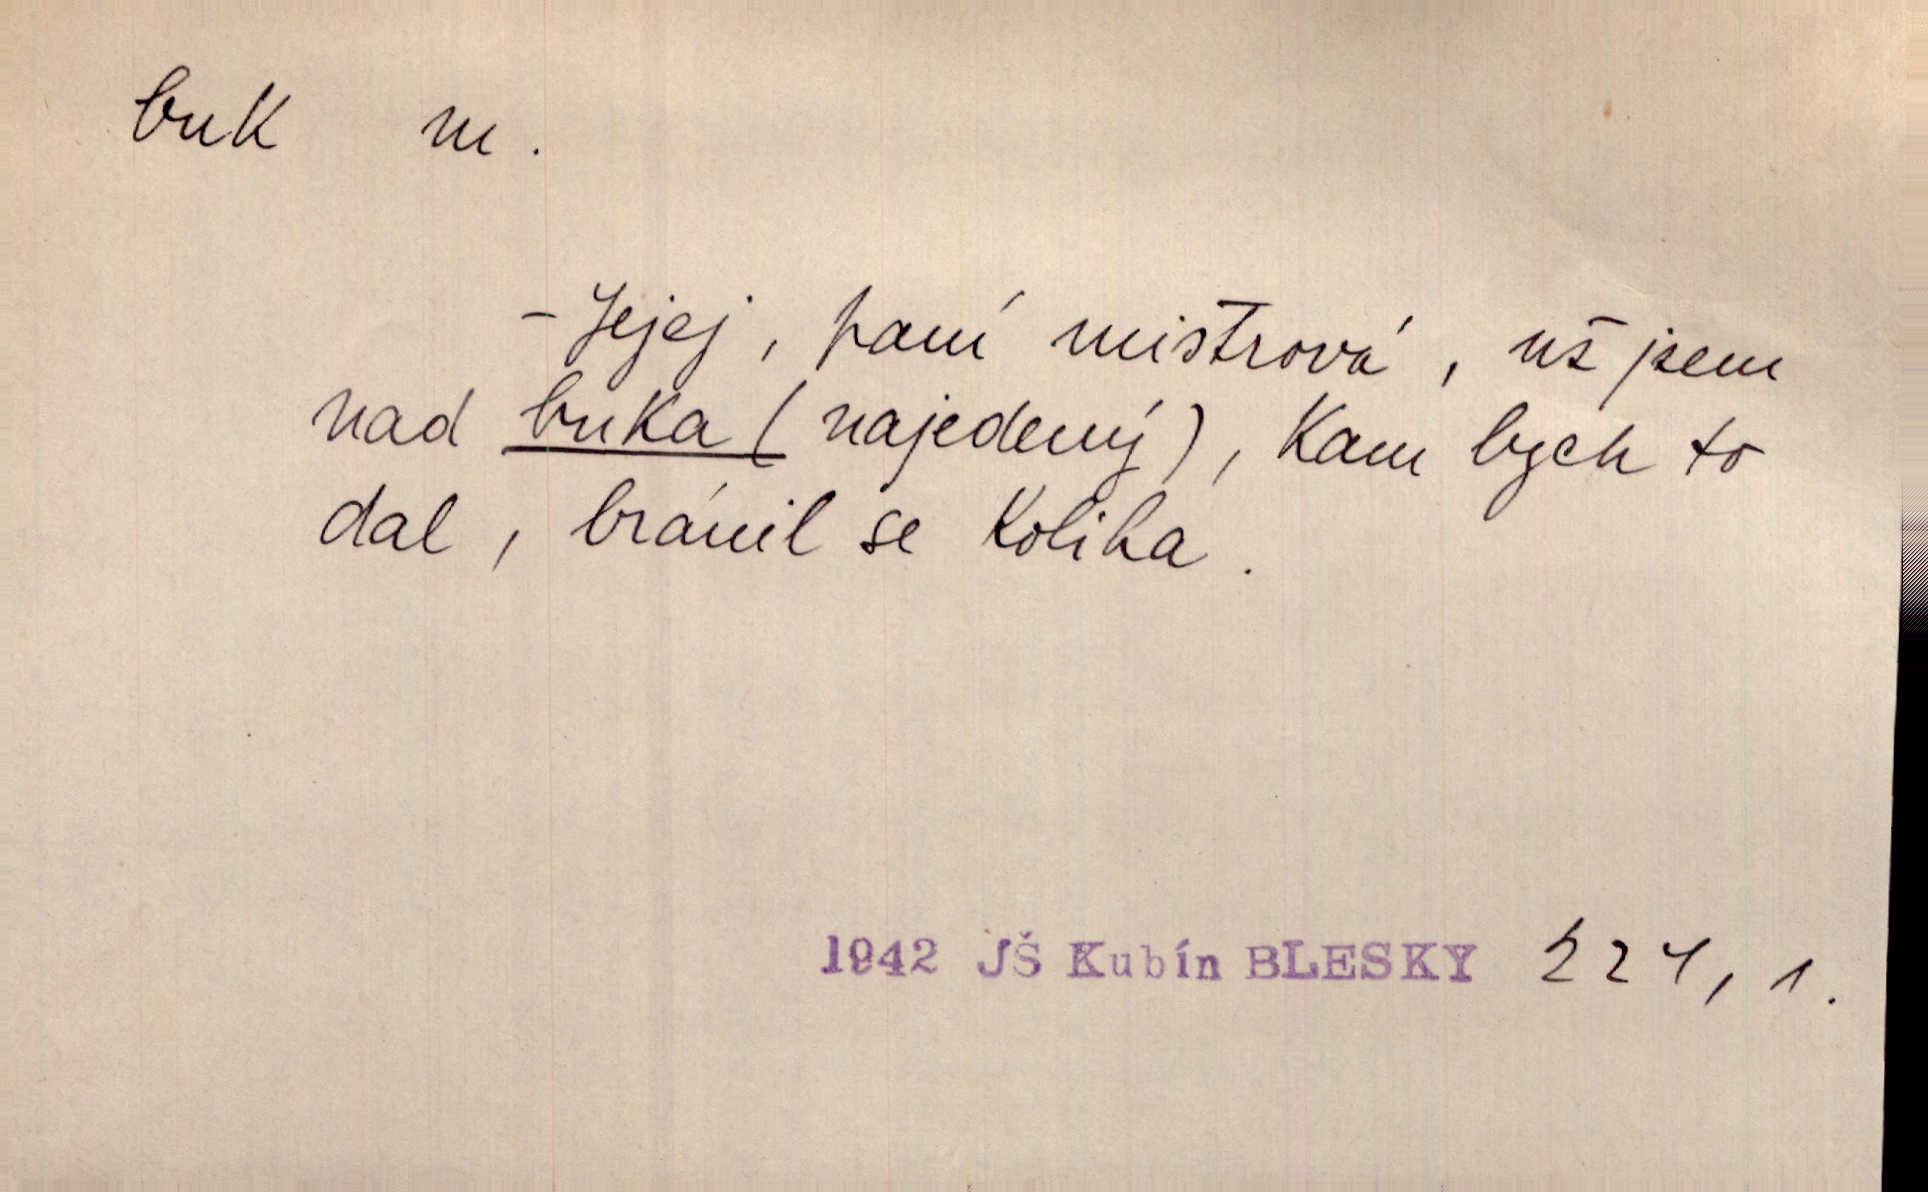 buk m.
- Jejej, paní mistrová, už jsem
nad buka (najedený), kam bych to
dal, bránil se Koliha.
1942 JŠ Kubín BLESKY 224, 1.